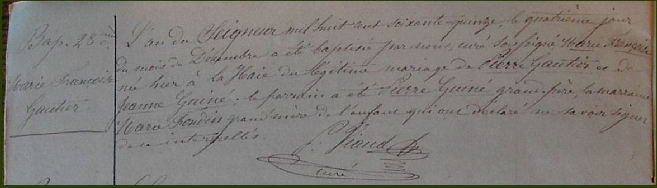 Bap. 28ème
Marie Françoise
Gautier
L'an du Seigneur mil huit cent soixante-quinze, le quatrième jour
du mois de Décembre a été baptisée par nous, curé soussigné Marie Françoise
née hier à La Haie du légitime mariage de Pierre Gautier et de
Jeanne Guiné; le parrain a été Pierre Guiné grand-père, la marraine
Marie grand'mère de l'enfant qui ont déclaré ne savoir signer
de ce interpellés.
curé